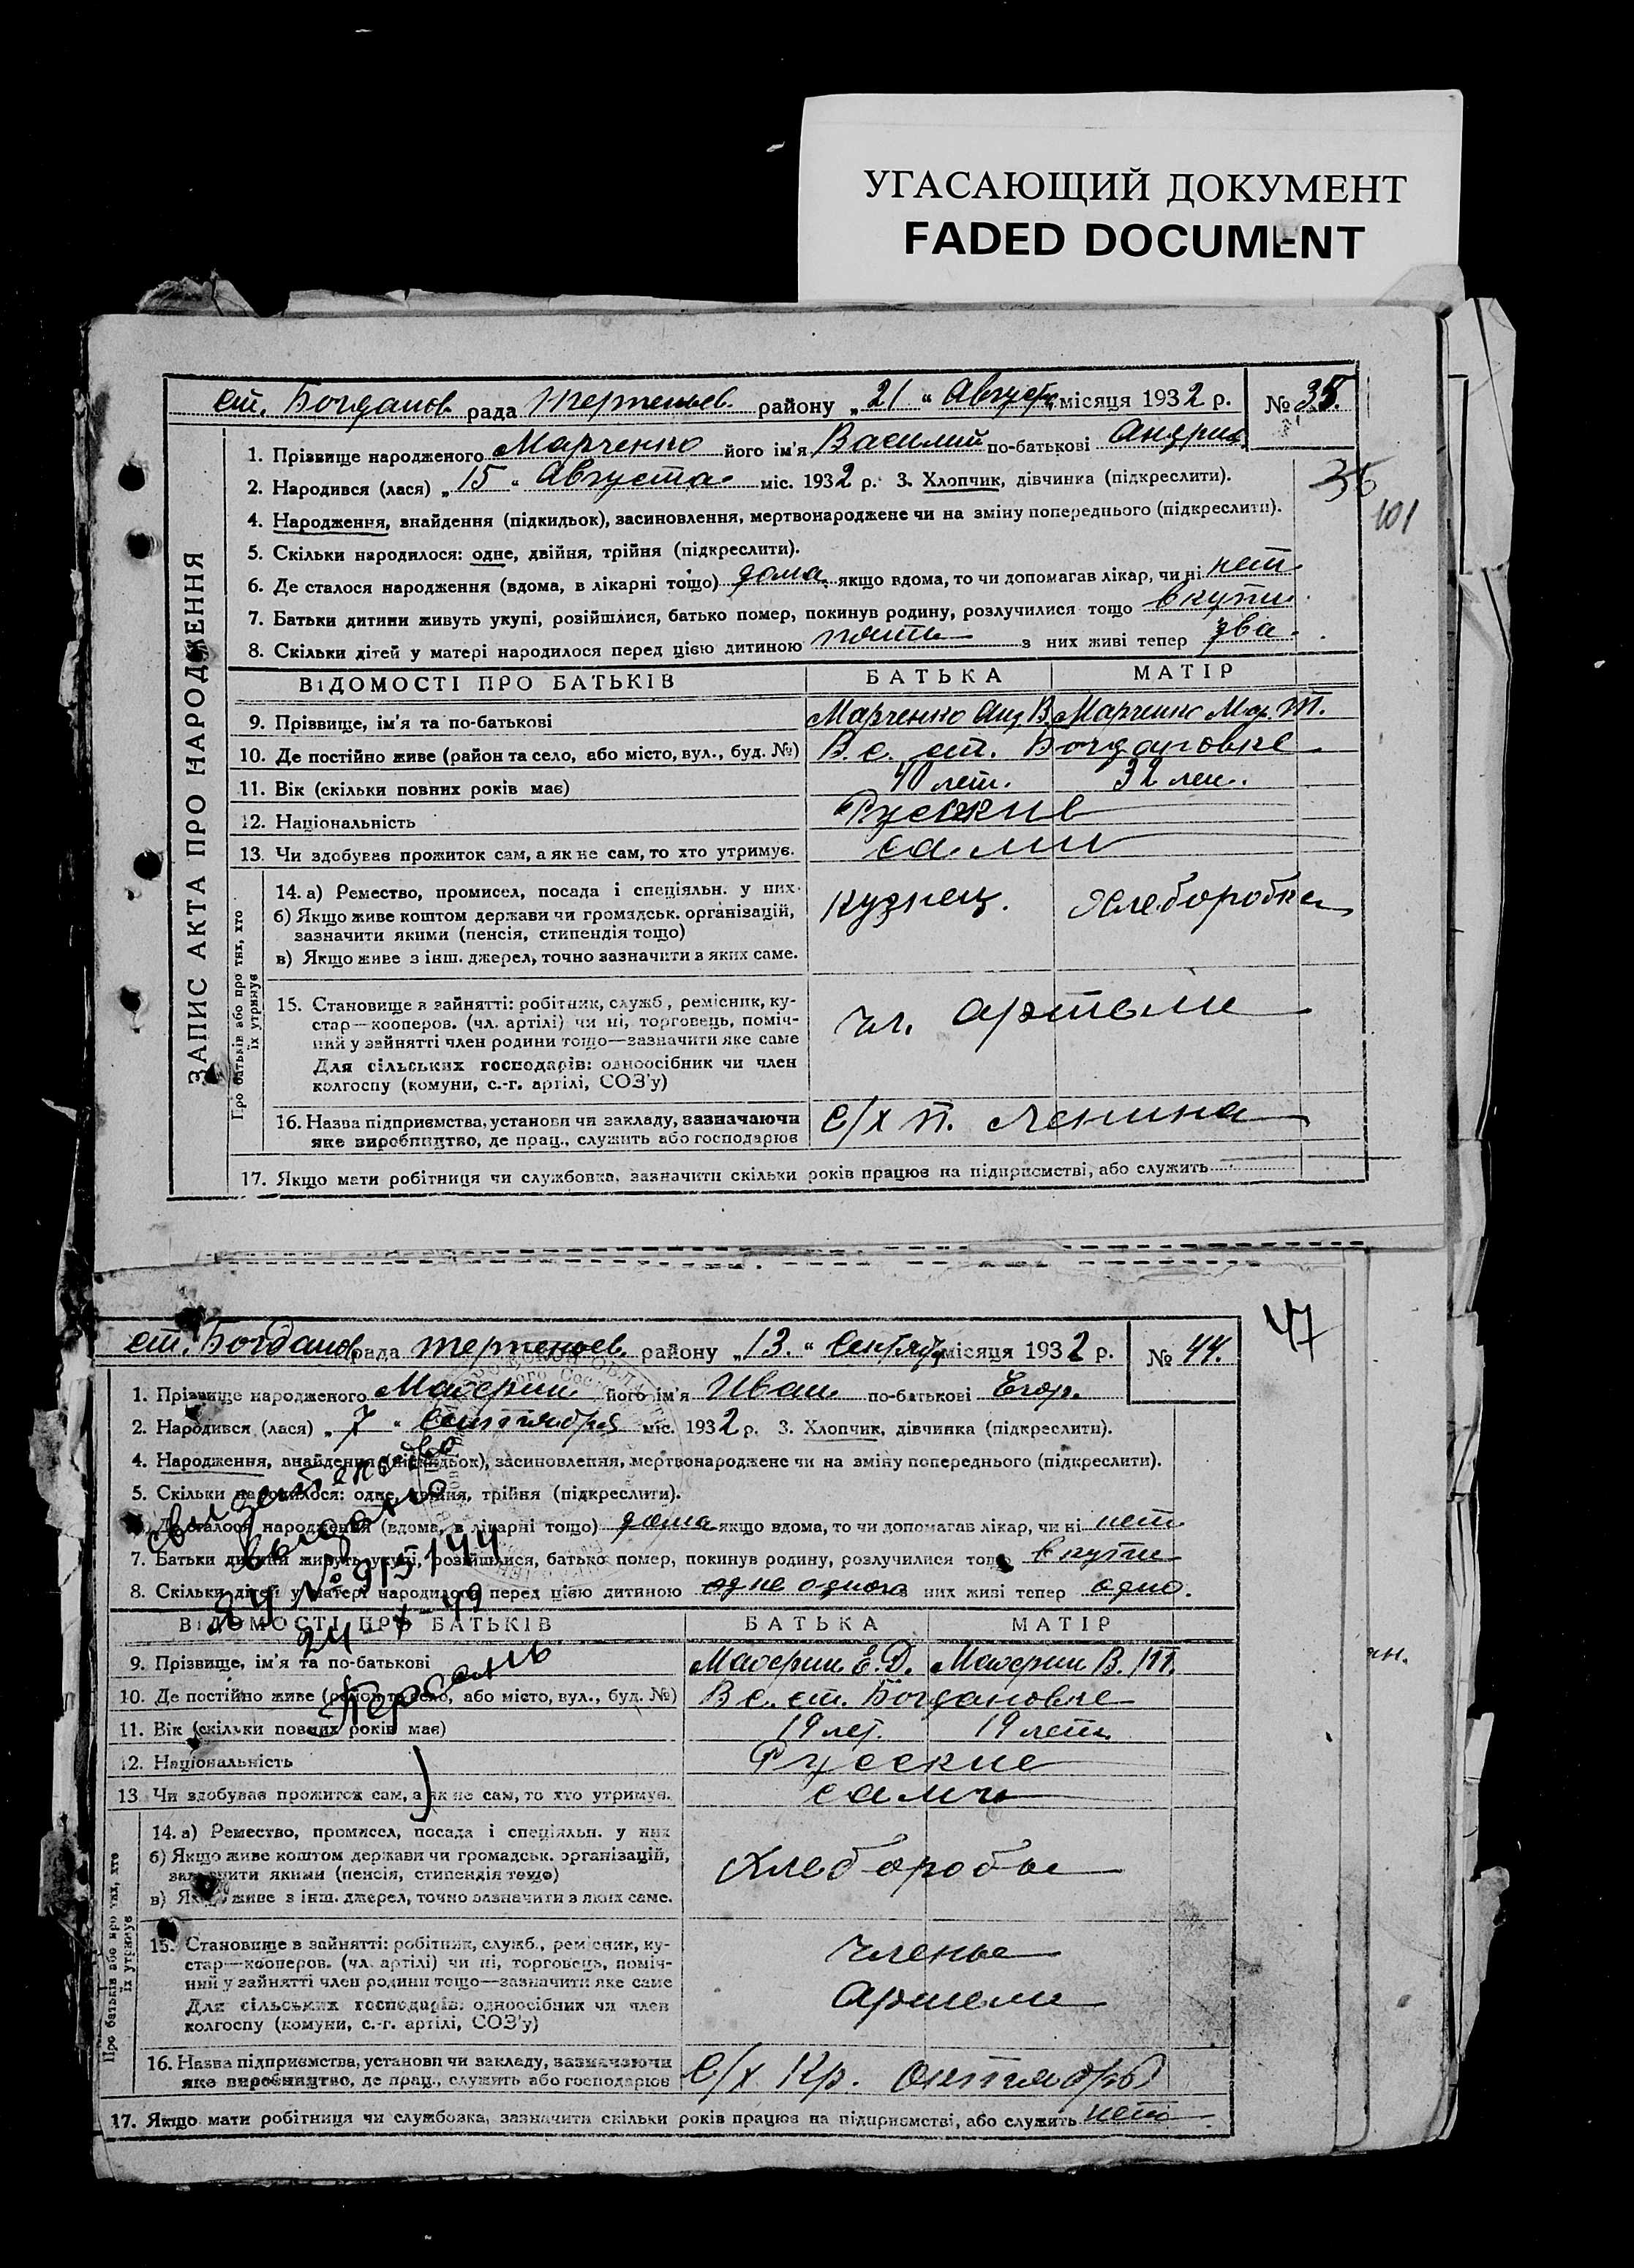 УГАСАЮЩИЙ ДОКУМЕНТ
FADED DOCUMENT
ст. Богданов. рада Терпеньев. району „21“ Август. місяця 1932 р. № 35.
1. Прізвище народженого Марченко його ім'я Василий по-батькові Андрих.
2. Народився (лася) „15“ Августа міс. 1932 р. 3. Хлопчик, дівчинка (підкреслити).
36
101
4. Народження, знайдення (підкидьок), засиновлення, мертвонароджене чи на зміну попереднього (підкреслити).
5. Скільки народилося: одне, двійня, трійня (підкреслити).
6. Де сталося народження (вдома, в лікарні тощо) дома якщо вдома, то чи допомагав лікар, чи ні нет
7. Батьки дитини живуть укупі, розійшлися, батько помер, покинув родину, розлучилися тощо вкупи
8. Скільки дітей у матері народилося перед цією дитиною з них живі тепер два
ЗАПИС АКТА ПРО НАРОДЖЕННЯ
ВІДОМОСТІ ПРО БАТЬКІВ БАТЬКА МАТІР
9. Прізвище, ім'я та по-батькові Марченко Анд. В. Марченко Мар. Т.
10. Де постійно живе (район та село, або місто, вул., буд. №) В с. ст. Богдановке
11. Вік (скільки повних років має) 40 лет. 32 лет.
12. Національність Русские
13. Чи здобував прожиток сам, а як не сам, то хто утримує. сами
Про батьків або про тих, хто їх утримує
14. а) Ремество, промисел, посада і спеціяльн. у них. Кузнец. Хлеборобка
б) Якщо живе коштом держави чи громадськ. організацій,
зазначити якими (пенсія, стипендія тощо)
в) Якщо живе з інш. джерел, точно зазначити з яких саме.
15. Становище в зайнятті: робітник, служб., ремісник, ку-
стар—кооперов. (чл. артілі) чи ні, торговець, поміч- чл. артели
ний у зайнятті член родини тощо—зазначити яке саме
Для сільських господарів: одноосібник чи член
колгоспу (комуни, с.-г. артілі, СОЗ'у)
16. Назва підприємства, установи чи закладу, зазначаючи С/х п. Ленина
яке виробництво, де прац., служить або господарює
17. Якщо мати робітниця чи службовка, зазначити скільки років працює на підприємстві, або служить
47
ст. Богданов рада Терпеньев. району „13.“ Сентяб. місяця 1932 р. № 44.
1. Прізвище народженого його ім'я Иван по-батькові Егор.
2. Народився (лася) „7“ Сентября міс. 1932 р. 3. Хлопчик, дівчинка (підкреслити).
4. Народження, знайдення (підкидьок), засиновлення, мертвонароджене чи на зміну попереднього (підкреслити).
5. Скільки народилося: одне, двійня, трійня (підкреслити).
6. Де сталося народження (вдома, в лікарні тощо) дома якщо вдома, то чи допомагав лікар, чи ні нет
7. Батьки дитини живуть укупі, розійшлися, батько помер, покинув родину, розлучилися тощо вкупи
8. Скільки дітей у матері народилося перед цією дитиною них живі тепер одно.
свидетельство
выдано
№ 915144
ВІДОМОСТІ ПРО БАТЬКІВ БАТЬКА МАТІР
9. Прізвище, ім'я та по-батькові
10. Де постійно живе (район та село, або місто, вул., буд. №) В с. ст. Богдановке
11. Вік (скільки повних років має) 19 лет. 19 лет.
12. Національність Русские
13. Чи здобував прожиток сам, а як не сам, то хто утримує. сами
Про батьків або про тих, хто їх утримує
14. а) Ремество, промисел, посада і спеціяльн. у них
б) Якщо живе коштом держави чи громадськ. організацій, Хлеборобы
зазначити якими (пенсія, стипендія тощо)
в) Якщо живе з інш. джерел, точно зазначити з яких саме.
15. Становище в зайнятті: робітник, служб., ремісник, ку- члены
стар—кооперов. (чл. артілі) чи ні, торговець, поміч-
ний у зайнятті член родини тощо—зазначити яке саме артели
Для сільських господарів: одноосібник чи член
колгоспу (комуни, с.-г. артілі, СОЗ'у)
16. Назва підприємства, установи чи закладу, зазначаючи С/х Кр. Октябрь
яке виробництво, де прац., служить або господарює
17. Якщо мати робітниця чи службовка, зазначити скільки років працює на підприємстві, або служить нет